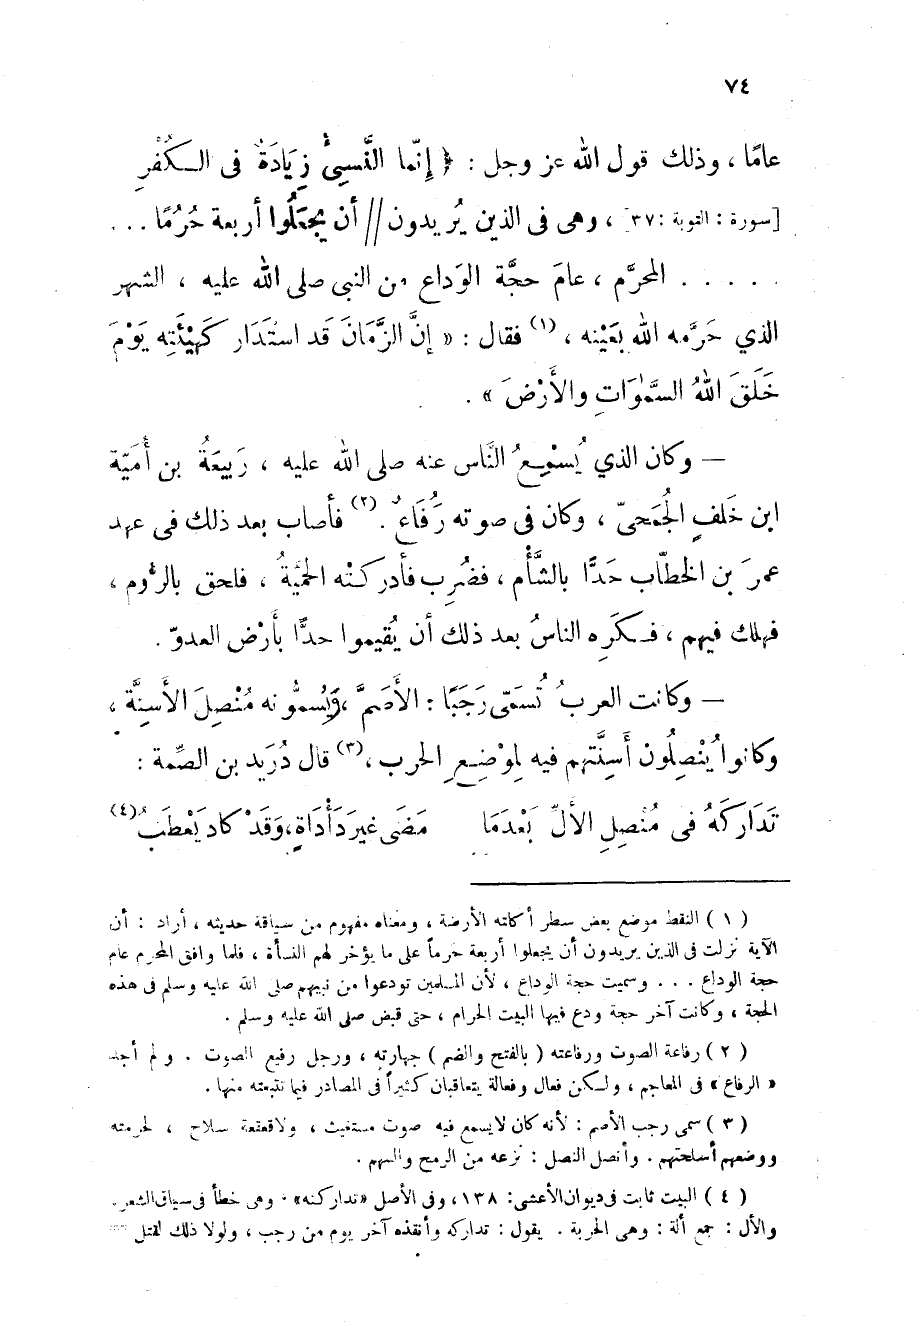 ٧٤
عامًا ، وذلك قول الله عز وجل : ﴿ إِنَّما النَّسِىُٔ زِيَادَةٌ فى الكُفْرِ
[سورة : التوبة :٣٧] ، وهى فى الذين يُريدون // أن يجعَلُوا أربعة حُرُمًا ...
. . . . . المحرَّم ، عامَ حجَّة الوَداع من النبى صلى الله عليه ، الشهر
الذي حَرَّمه الله بعَيْنه ، (١) فقال : « إنَّ الزَّمَانَ قَد استَدَار كَهَيْئَتِه يَوْمَ
خَلَقَ اللهُ السَّمٰوَاتِ والأَرْضَ » .
— وكان الذي يُسْمِعُ النَّاس عنه صلى الله عليه ، رَبِيعَةُ بن أُمَيّة
ابن خَلَفٍ الجُمَحىّ ، وكان فى صوته رُفَاعٌ . (٢) فأصاب بعد ذلك فى عهد
عمرَ بن الخطّاب حَدًّا بالشَّأْم ، فضُرِب فأدركتْه الحَمِيَّةُ ، فلحق بالرُّوم ،
فهلك فيهم ، فكَرِه الناسُ بعد ذلك أن يُقيموا حدًّا بأَرْض العدوّ .
— وكانت العربُ تُسَمّى رَجَبًا : الأَصَمَّ ، وَيُسمُّونه مُنْصِلَ الأَسِنَّة ،
وكانوا يُنْصِلُونَ أَسِنَّتهم فيه لِمَوْضِعِ الحرب ، (٣) قال دُرَيد بن الصِّمة :
تَدَارَكَهُ فى مُنْصِلِ الأَلِّ بَعْدَمَا مَضَى غيرَ دَأْدَاةٍ ، وَقَدْ كادَ يَعْطَبُ (٤)
( ١ ) النقط موضع بعض سطر أكلته الأرضة ، ومعناه مفهوم من سياقة حديثه ، أراد : أن
الآية نزلت فى الذين يريدون أن يجعلوا أربعة حرماً على ما يؤخر لهم النسأة ، فلما وافق المحرم عام
حجة الوداع . . . وسميت حجة الوداع ، لأن المسلمين تودعوا من نبيهم صلى الله عليه وسلم فى هذه
الحجة ، وكانت آخر حجة ودع فيها البيت الحرام ، حتى قبض صلى الله عليه وسلم .
( ٢ ) رفاعة الصوت ورفاعته ( بالفتح والضم ) جهارته ، ورجل رفيع الصوت . و لم أجد
« الرفاع » فى المعاجم ، ولكن فعال وفعالة يتعاقبان كثيراً فى المصادر فيما نتبعته منها .
( ٣ ) سمى رجب الأصم : لأنه كان لا يسمع فيه صوت مستغيث ، ولا قعقعة سلاح ، لحرمته
ووضعهم أسلحتهم . وأنصل النصل : نزعه من الرمح والسهم .
( ٤ ) البيت ثابت فى ديوان الأعشى: ١٣٨ ، وفى الأصل «تداركنه» . وهى خطأ فى سياق الشعر .
والأل : جمع ألة : وهى الحربة . يقول : تداركه وأنقذه آخر يوم من رجب ، ولولا ذلك لقتل